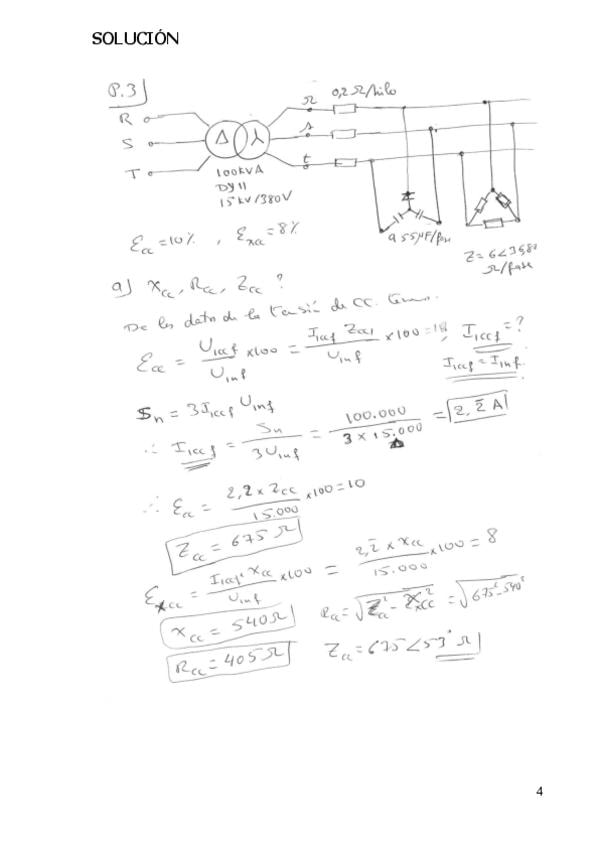 SOLUCIÓN
P.3
R
0,2 Ω/hilo
S
T
100KVA
DY11
15kV/380V
955µF/fase
Z=6<36,8º
Ω/fase
Ecc=10% , Excc=8%
a) Xcc, Rcc, Zcc ?
De los datos de la tensión de CC. tenemos.
Ecc = U1ccf/U1nf ×100 = I1ccf Zcc1/U1nf ×100=10, I1ccf=?
I1ccf = I1nf.
Sn = 3I1ccf U1nf
∴ I1ccf = Sn/3U1nf = 100.000/3 × 15.000 = 2,2 A
∴ Ecc = 2,2 × Zcc/15.000 ×100=10
Zcc = 675 Ω
Excc = I1ccf · Xcc/U1nf ×100 = 2,2 × Xcc/15.000 ×100 = 8
Xcc = 540Ω
Rcc=√Zcc² - Xcc² = √675²-540²
Rcc = 405 Ω
Zcc = 675 <53° Ω
4